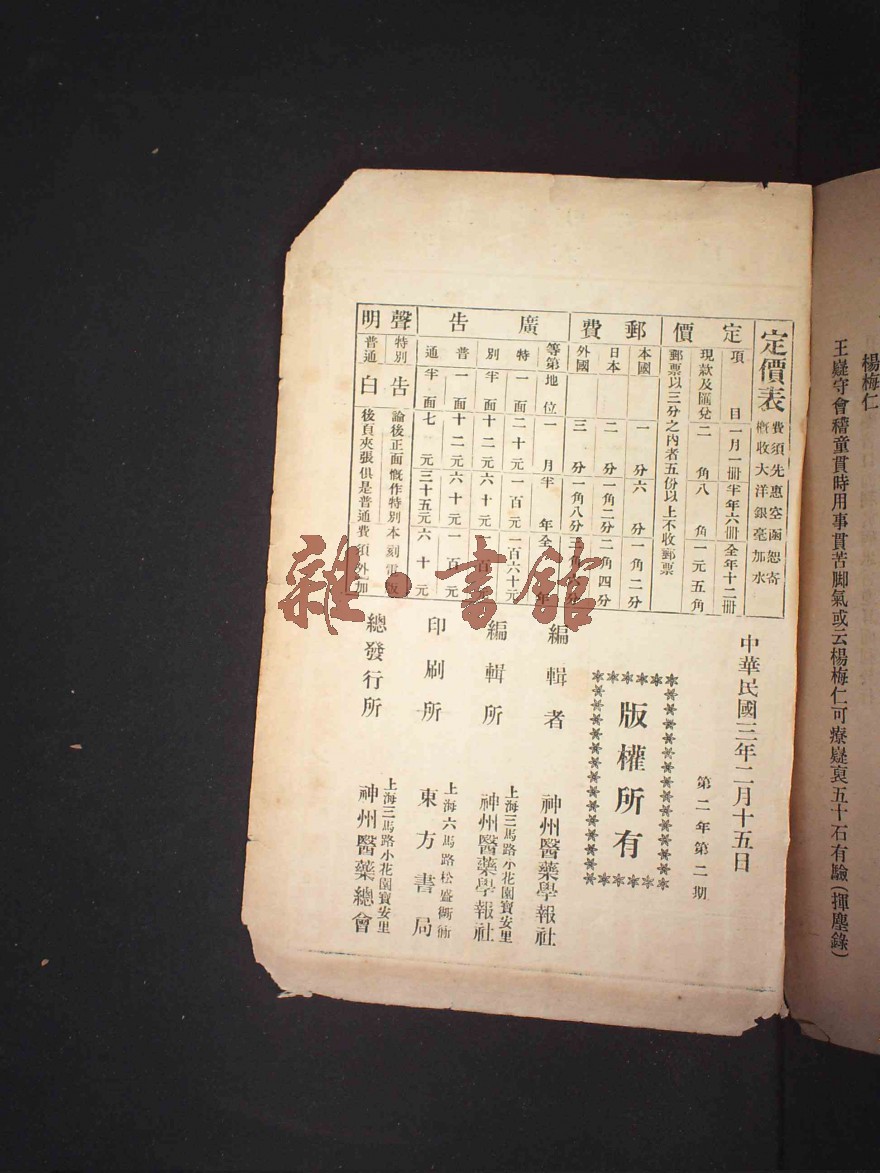 楊梅仁
王嶷守會稽童貫時用事貫苦脚氣或云楊梅仁可療嶷裒五十石有驗(揮塵錄)
定價表
費須先惠空函恕寄
概收大洋銀毫加水
定價
項目 一月一册 半年六册 全年十二册
現款及匯兌 二角 八角 一元五角
郵票以三分之內者五份以上不收郵票
郵費
本國 一分 六分 一角二分
日本 二分 一角二分 二角四分
外國 三分 一角八分 三角六分
廣告
等第 地位 一月 半年 全年
特別 一面 二十元 一百元 一百六十元
半面 十二元 六十元 百元
普通 一面 十二元 六十元 一百元
半面 七元 三十五元 六十元
聲明
特別 告 論後正面慨作特別本刻電版
普通 白 後頁夾張俱是普通費須外加
中華民國三年二月十五日
第二年第二期
版權所有
編輯者 神州醫藥學報社
編輯所 上海三馬路小花園寶安里
神州醫藥學報社
印刷所 上海六馬路松盛衖衖
東方書局
總發行所 上海三馬路小花園寶安里
神州醫藥總會
雜·書館